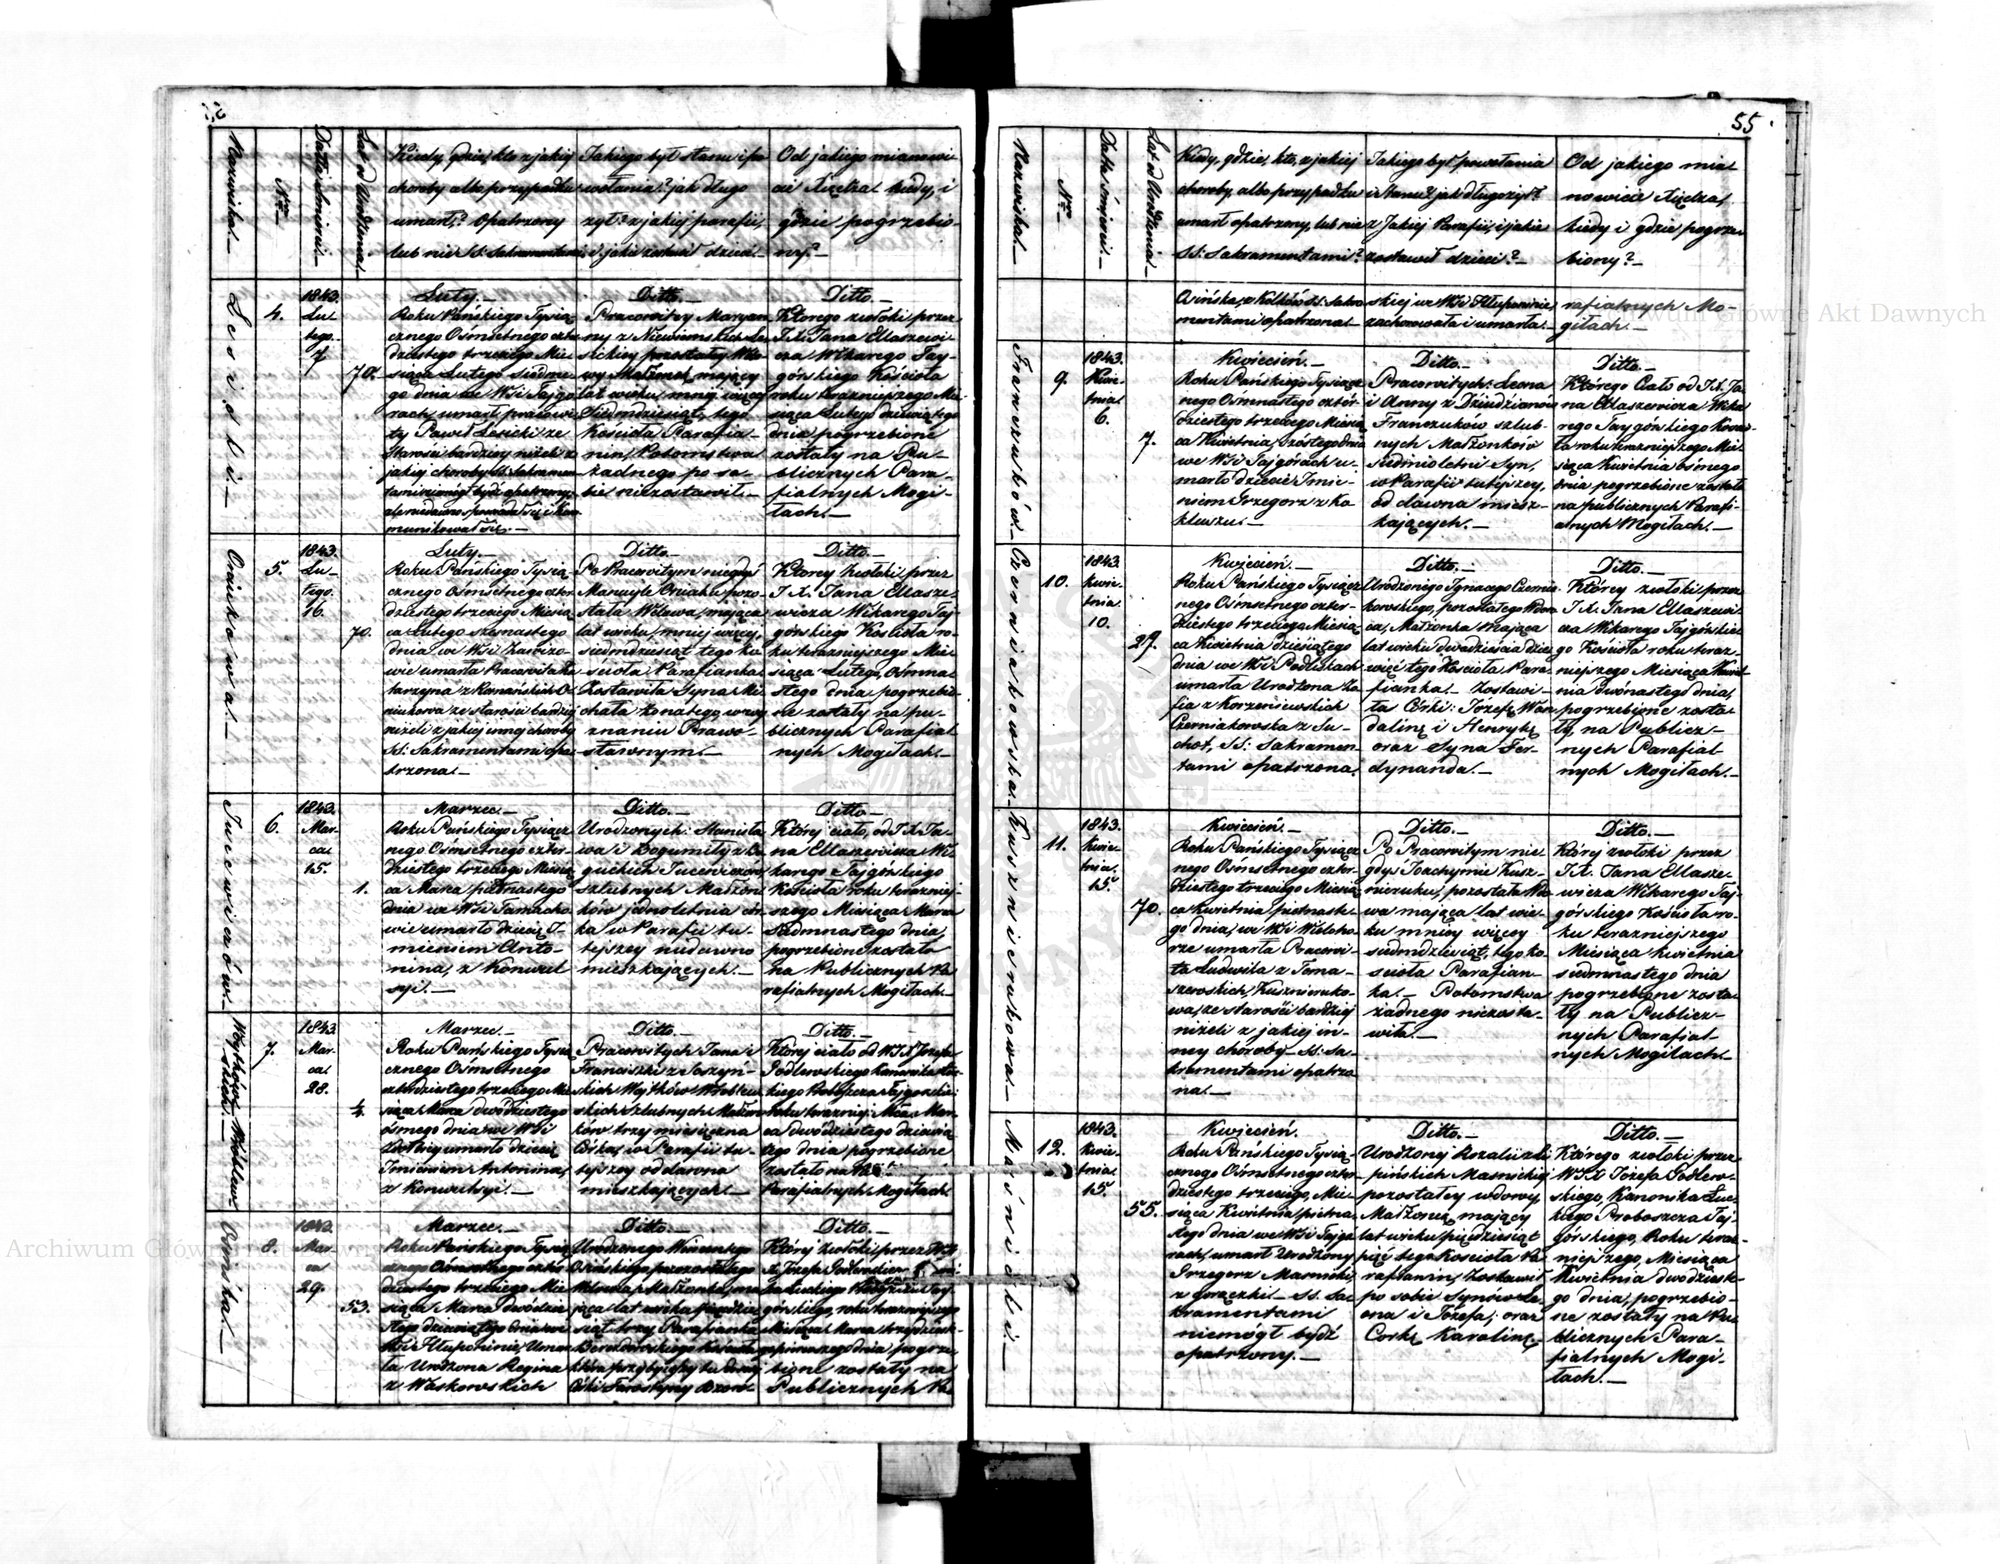 55.
Nazwiska.
Nro
Data śmierci.
Lat od Urodzenia.
Kiedy, gdzie, kto z jakiej
choroby albo przypadku
umarł? Opatrzony
lub nie SS: Sakramentami.
Jakiego był stanu i po
wołania? jak długo
żył? z jakiej parafii,
i jakie zostawił dzieci.
Od jakiego mianowi
cie Xiędza kiedy, i
gdzie pogrzebio-
ny?
Lesicki.
4.
1843.
Lu
tego.
7
70.
Luty.
Roku Pańskiego Tysią
cznego Ośmsetnego czter
dziestego trzeciego Mie
siąca Lutego siódme
go dnia we Wsi Tajgó
rach, umarł pracowi
ty Paweł Lesicki ze
Starości bardziej niżeli z
jakiej choroby SS: Sakramen
tami niemógł bydź opatrzony,
ale niedawno spowiadał się i kom
munikował się.
Ditto.
Pracowitey Maryan
ny z
sickiey pozostały Wdo
wy Małżonek, mający
lat wieku, mniej więcej
Siedmdziesiąt, tego
Kościoła Parafia-
nin, Potomstwa
żadnego po so-
bie niezostawił.
Ditto.
Którego zwłoki przez
J.X. Jana Ellaszewi
cza Wikarego Taj-
górskiego Kościoła
roku teraźniejszego Mie
siąca Lutego dziewiątego
dnia pogrzebione
zostały na Pu-
blicznych Para-
fialnych Mogi-
łach.
Oniukowa.
5.
1843.
Lu-
tego.
16.
70.
Luty.
Roku Pańskiego Tysią
cznego Ośmsetnego czter
dziestego trzeciego Miesią
ca Lutego szesnastego
dnia we Wsi
wie umarła Pracowita Ka
tarzyna z
niukowa ze starości bardziej
niżeli z jakiej innej choroby
SS: Sakramentami opa
trzona.
Ditto.
Po Pracowitym niegdyś
Manuyle Oniuku pozo
stała Wdowa, mająca
lat wieku, mniej więcej,
siedmdziesiąt tego Ko
ścioła Parafianka
Zostawiła Syna Mi
chała żonatego w wy
znaniu Prawo-
sławnym.
Ditto.
Którey zwłoki przez
J.X. Jana Ellasze-
wicza Wikarego Taj
górskiego Kościoła ro-
ku teraźniejszego Mie
siąca Lutego, Ośmna
stego dnia pogrzebio
ne zostały na pu-
blicznych Parafial
nych Mogiłach.
Jucewiczów.
6.
1843.
Mar-
ca
15.
1.
Marzec.
Roku Pańskiego Tysiącz
nego Ośmsetnego czter-
dziestego trzeciego Miesią
ca Marca piętnastego
dnia we Wsi Tarnacho
wie umarło dziecię I-
mieniem Anto-
nina, z Konwul
syi.
Ditto.
Urodzonych: Stanisła
wa i Bogumiły z
Jucewiczów
szlubnych Małżon
ków jednoletnia cór
ka w Parafii tu-
tejszey niedawno
mieszkających.
Ditto.
Której ciało, od J.X. Ja-
na Ellaszewicza Wi
karego Tajgórskiego
Kościoła roku teraźniej-
szego Miesiąca Marca
Siedmnastego dnia
pogrzebione zostało
na Publicznych Pa
rafialnych Mogiłach.
7.
1843
Mar-
ca
28.
¼.
Marzec.
Roku Pańskiego Tysią
cznego Ośmsetnego
czterdziestego trzeciego Mie
siąca Marca dwódziestego
ósmego dnia we Wsi
umarło dziecię
Imieniem Antonina,
z Konwulsyi.
Ditto.
Pracowitych Jana i
Franciszki z
skich Wojtków
skich Szlubnych Małżon
ków trzy miesięczna
Córka, w Parafii tu-
tejszey oddawna
mieszkających.
Ditto.
Której ciało od W.J.X. Józefa
Podlewskiego Kanonika Łuc
kiego Proboszcza Tajgórskie
Roku teraźniej: M-ca Mar
ca dwódziestego dziewią
tego dnia pogrzebione
zostało na
Parafialnych Mogiłach.
Osińska.
8.
1843.
Mar-
ca
29.
53.
Marzec.
Roku Pańskiego Tysią
cznego Ośmsetnego czter
dziestego trzeciego Mie
siąca Marca dwódzie
stego dziewiątego dnia we
Wsi Hłuponinie, Umar
ła Urodzona Regina
z Waskowskich
Ditto.
Urodzonego Wincentego
Osińskiego, pozostałego
Wdowca, Małżonka, ma
jąca lat wieku pięćdzie
siąt trzy Parafianka
Kościoła
która przybyłszy tu
Ditto.
Której zwłoki przez W.J.
X. Józefa Podlewskiego
górskiego, roku teraźniejszego
Miesiąca Marca trzydziest-
ego pierwszego dnia, pogrze
bione zostały na
Publicznych Pa
55.
Nazwiska.
Nro
Data śmierci.
Lat od Urodzenia
Kiedy, gdzie, kto, z jakiej
choroby, albo przypadku
umarł opatrzony, lub nie
SS: Sakramentami?
Jakiego był powołania
i Stanu? jak długo żył?
z Jakiej Parafii, i jakie
zostawił dzieci?
Od jakiego mia
nowicie Xiędza,
kiedy i gdzie, pogrze
biony?
Osińska, z Kolków SS: Sakra
mentami opatrzona.
skiej we Wsi Hłuponinie,
zachorowała i umarła.
rafialnych Mo-
giłach.
Franczuków.
9.
1843.
Kwie-
tnia
6.
7.
Kwiecień.
Roku Pańskiego Tysiącz
nego Ośmsetnego czter-
dziestego trzeciego Miesią
ca Kwietnia, szóstego dnia
we Wsi Tajgórach u-
marło dziecię Imie-
niem Grzegorz z ko
kluszu.
Ditto.
Pracowitych: Leona
i Anny z
Franczuków szlub-
nych Małżonków
siedmioletni Syn,
w Parafii tutejszey,
od dawna miesz-
kających.
Ditto.
Którego Ciało od J.X. Ja-
na Ellaszewicza Wika
rego Tajgórskiego Kościo-
ła roku teraźniejszego Mie-
siąca Kwietnia ósmego
dnia pogrzebione zostało
na publicznych Parafi-
alnych Mogiłach.
Czerniakowska.
10.
1843.
Kwie-
tnia.
10.
29.
Kwiecień.
Roku Pańskiego Tysiącz
nego Ośmsetnego czter-
dziestego trzeciego Miesią
ca Kwietnia dziesiątego
dnia we Wsi Podliskach
umarła Urodzona Zo
fia z Korzeniewskich
Czerniakowska z Su-
chot, SS: Sakramen-
tami opatrzona.
Ditto.
Urodzonego Ignacego Czernia
kowskiego, pozostałego Wdow
ca, Małżonka mająca
lat wieku dwadzieścia dzie
więć tego Kościoła Para-
fianka. Zostawi-
ła Córki: Józefę, Wan
dalinę i Henrykę
oraz Syna Fer-
dynanda.
Ditto.
Której zwłoki przez
J.X. Jana Ellaszewi
cza Wikarego Tajgórskie
go Kościoła roku teraź-
niejszego Miesiąca Kwiet
nia dwónastego dnia,
pogrzebione zosta-
ły, na Publicz-
nych Parafial
nych Mogiłach.
Kusznierukowa.
11.
1843.
Kwie-
tnia.
15.
70.
Kwiecień.
Roku Pańskiego Tysiącz
nego Ośmsetnego czter-
dziestego trzeciego Miesią
ca Kwietnia piętnaste-
go dnia, we Wsi Wielobo-
rze umarła Pracowi-
ta Ludwika z Toma-
szewskich, Kusznieruko-
wa, ze starości bardziej
niżeli z jakiej in-
ney choroby SS. Sa-
kramentami opatrzo
na.
Ditto.
Po Pracowitym nie-
gdyś Joachymie Kusz-
nieruku, pozostała Wdo
wa mająca lat wie-
ku mniey więcey
siedmdziesiąt, tego Ko-
ścioła Parafian-
ka. Potomstwa
żadnego niezosta-
wiła.
Ditto.
Której zwłoki przez
J.X. Jana Ellasze-
wicza Wikarego Taj-
górskiego Kościoła ro-
ku teraźniejszego
Miesiąca Kwietnia
siedmnastego dnia
pogrzebione zosta
ły na Publicz-
nych Parafial-
nych Mogiłach.
Maśnicki.
12.
1843.
Kwie-
tnia.
15.
55.
Kwiecień.
Roku Pańskiego Tysią-
cznego Ośmsetnego czter-
dziestego trzeciego, Mie-
siąca Kwietnia piętna-
stego dnia we Wsi Tajgó
rach, umarł Urodzony
Grzegorz Masnicki,
z gorączki SS. Sa-
kramentami
niemógł bydź
opatrzony.
Ditto.
Urodzonej Rozalii z Li
pińskich Masnickiej
pozostałey wdowy
Małżonek, mający
lat wieku, pięćdziesiąt
pięć tego Kościoła Pa-
rafianin, Zostawił
po sobie Synów Le-
ona i Józefa; oraz
Corkę Karolinę.
Ditto.
Którego zwłoki przez
W.J.X Józefa Podlew-
skiego, Kanonika Łuc-
kiego Proboszcza Taj-
górskiego, Roku teraź-
niejszego, Miesiąca
Kwietnia dwódzieste-
go dnia, pogrzebio-
ne zostały na Pu-
blicznych Para-
fialnych Mogi-
łach.
Archiwum Główne Akt Dawnych
Archiwum Główne Akt Dawnych